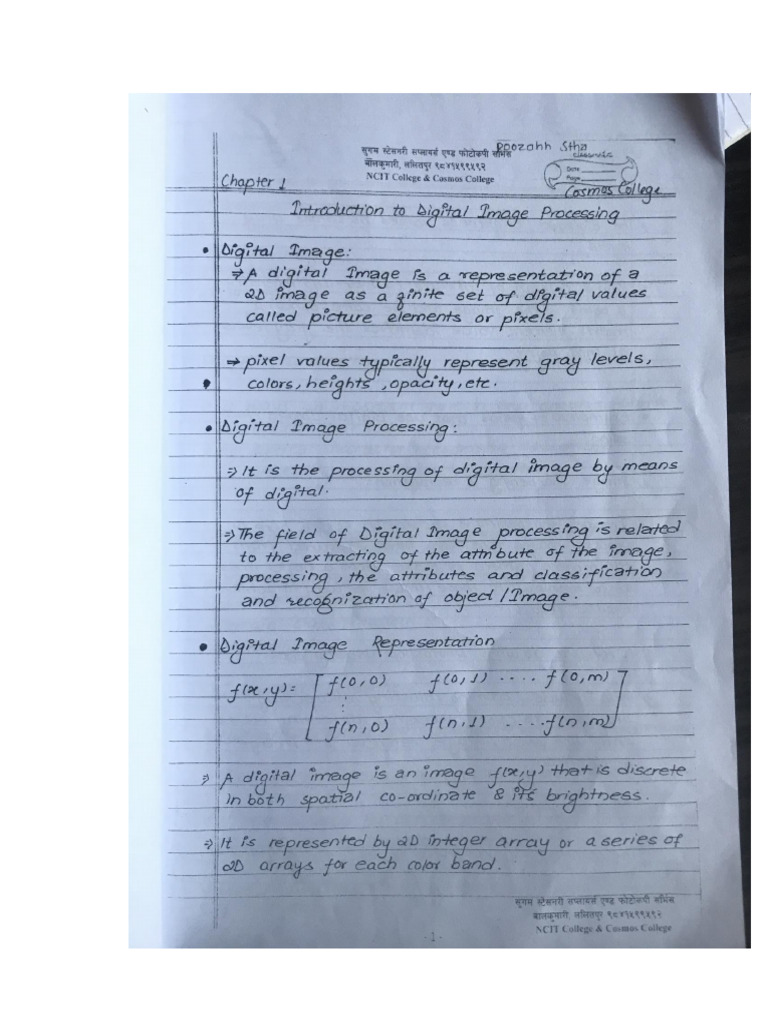 सुगम स्टेसनरी सप्लायर्स एण्ड फोटोकपी सर्भिस
बालकुमारी, ललितपुर ९८४१५९९५९२
NCIT College & Cosmos College
Poozahh Stha
Date
Page
Cosmos College
Chapter 1
Introduction to Digital Image Processing
• Digital Image:
⇒ A digital Image is a representation of a
2D image as a finite set of digital values
called picture elements or pixels.
→ pixel values typically represent gray levels,
• colors, heights, opacity, etc.
• Digital Image Processing:
⇒ It is the processing of digital image by means
of digital.
⇒ The field of Digital Image processing is related
to the extracting of the attribute of the image,
processing, the attributes and classification
and recognization of object / Image.
• Digital Image Representation
f(x,y)= [ f(0,0) f(0,1) .... f(0,m)
⋮
f(n,0) f(n,1) .... f(n,m) ]
⇒ A digital image is an image f(x,y) that is discrete
in both spatial co-ordinate & its brightness.
⇒ It is represented by 2D integer array or a series of
2D arrays for each color band.
सुगम स्टेसनरी सप्लायर्स एण्ड फोटोकपी सर्भिस
बालकुमारी, ललितपुर ९८४१५९९५९२
NCIT College & Cosmos College
-1-